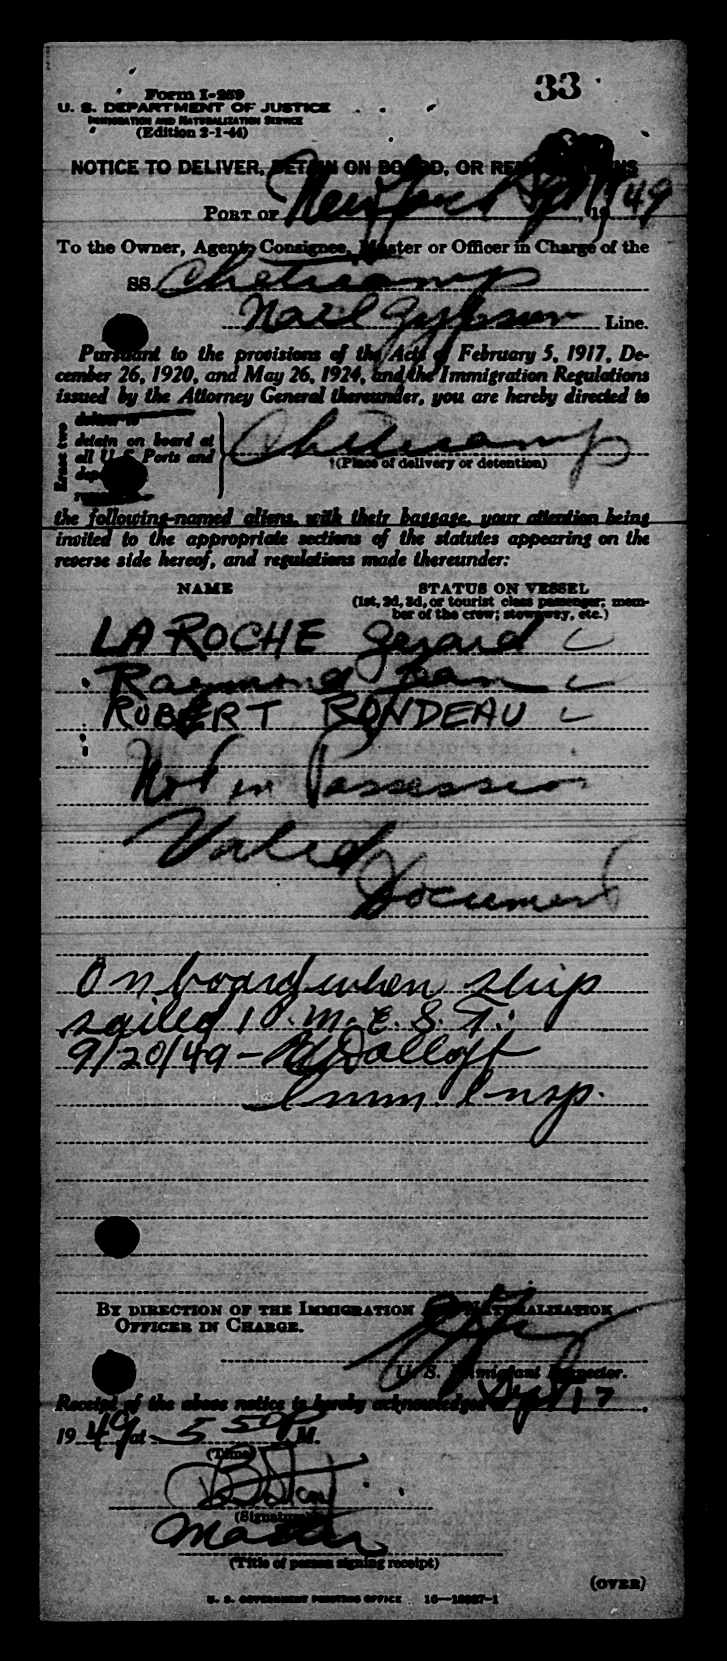 33
Form I-259
U. S. DEPARTMENT OF JUSTICE
IMMIGRATION AND NATURALIZATION SERVICE
(Edition 2-1-44)
NOTICE TO DELIVER, DETAIN ON BOARD, OR
PORT OF New York Sept 17, 1949
To the Owner, Agent, Consignee, Master or Officer in Charge of the
SS. Cheticamp
Natl Gypsum Line.
Pursuant to the provisions of the Acts of February 5, 1917, De-
cember 26, 1920, and May 26, 1924, and the Immigration Regulations
issued by the Attorney General thereunder, you are hereby directed to
Erase two
deliver to
detain on board at
all U. S. Ports and
Cheticamp
†(Place of delivery or detention)
the following-named aliens, with their baggage, your attention being
invited to the appropriate sections of the statutes appearing on the
reverse side hereof, and regulations made thereunder:
NAME STATUS ON VESSEL
(1st, 2d, 3d, or tourist class passenger; mem-
ber of the crew; stowaway, etc.)
LA ROCHE Gerard
Raymond Jean
ROBERT RONDEAU
Not in Possession
Valid
Document
On board when ship
sailed 1 P.M. E.S.T.
9/20/49 -
Imm. Insp.
BY DIRECTION OF THE IMMIGRATION AND NATURALIZATION
OFFICER IN CHARGE.
U. S. Immigrant Inspector.
Receipt of the above notice is hereby acknowledged Sept 17,
1949 at 5 50 P M.
(Time)
(Signature)
Master
(Title of person signing receipt)
(OVER)
U. S. GOVERNMENT PRINTING OFFICE